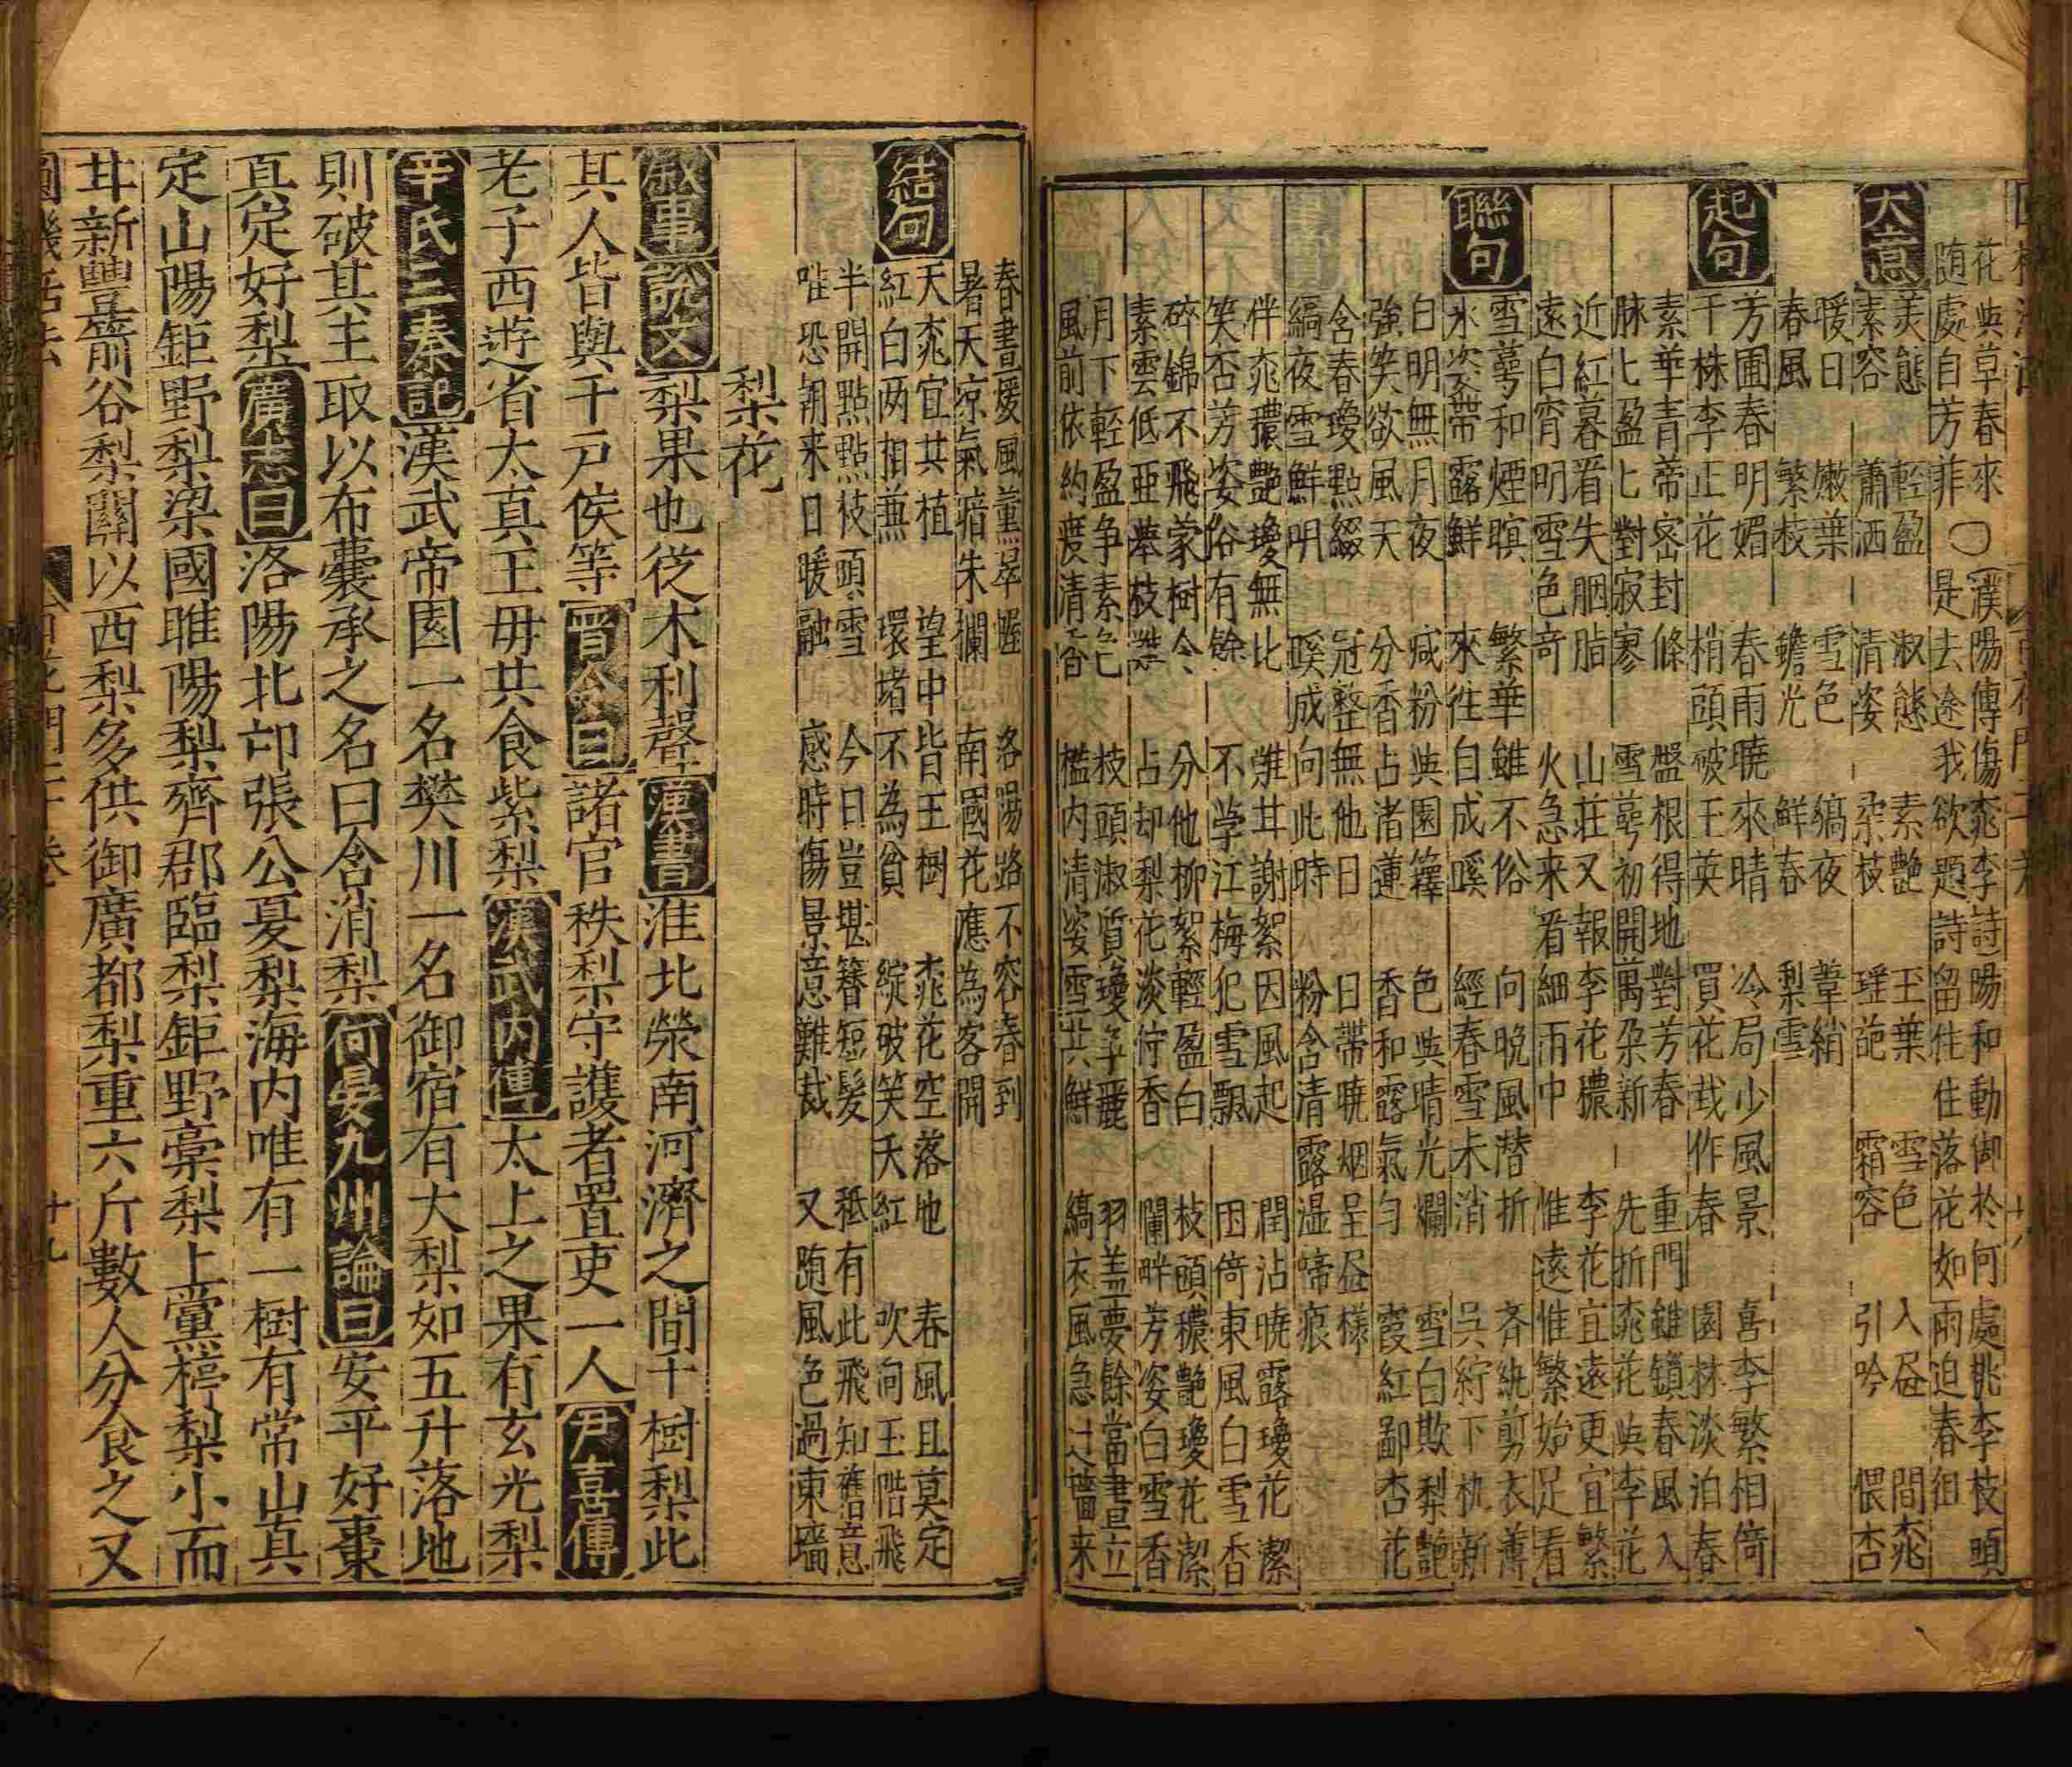 花與草春來○(濮陽傳傷桃李詩)陽和動御於何處桃李枝頭
随處自芳菲 是去途我欲題詩留住住落花如雨迫春徂
大意
美態 輕盈 淑態 素艷 玉葉 雪色 入昼 間桃
素容 蕭洒 清姿 朶枝 瑳葩 霜容 引吟 偎杏
暖日 嫩葉 雪色 縞夜 葦綃
春風 繁枝 蟾光 鮮春 梨雪
起句
芳圃春明媚 春雨曉來晴 冷局少風景 喜李繁相倚
千株李止花 梢頭破玉英 買花栽作春 園林淡泊春
素華青帝密封條 盤根得地對芳春 重門雖鎖春風入
脉匕盈匕對寂寥 雪萼初開萬朶新 先折桃花與李花
近紅暮看失胭脂 山莊又報李花穠 李花宜遠更宜繁
遠白宵明雪色奇 火急来看細雨中 惟遠惟繁始足看
聯句
雪萼和煙暝 繁華雖不俗 向晚風潜折 斉紈剪衣薄
氷姿帶露鮮 來往自成蹊 經春雪未消 呉紵下机新
白明無月夜 减粉與園籜 色與晴光爛 雪白欺梨艶
強笑欲風天 分香占渚蓮 香和露氣匀 霞紅鄙杏花
含春瓊點綴 冠整無他日 日帶曉烟呈昼樣
縞夜雪鮮明 蹊成向此時 粉含清露湿啼痕
伴桃穠艶瓊無比 難其謝絮因風起 潤沾曉露瓊花潔
笑杏芳姿俗有餘 不学江梅犯雪飄 困倚東風白雪香
碎錦不飛蒙樹令 分他柳絮輕盈白 枝頭穠艶瓊花潔
素雲低亜枝 占却梨花淡佇香 闌畔芳姿白雪香
月下輕盈争素色 枝頭淑質瓊争麗 羽盖夢餘當晝立
風前依約度清香 檻内清姿雪共鮮 縞衣風急过牆来
春晝煖風薰翠幄 洛陽路不容春到
暑天凉氣暗朱欄 南國花應為客開
結句
天桃宜共植 望中皆玉樹 桃花空落地 春風且莫定
紅白两相兼 環堵不為貧 綻破笑夭紅 吹向玉階飛
半開點點枝頭雪 今日豈堪簪短髮 秪有此飛知舊意
唯恐朝来日暖融 感時傷景意難裁 又随風色過東墻
梨花
叙事 說文 梨果也從木利聲 漢書 淮北滎南河濟之間千樹梨此
其人皆與千戶侯等 晋令曰 諸官秩梨守護者置吏一人 尹喜傳
老子西遊省太真王毋共食紫梨 漢武内傳 太上之果有玄光梨
辛氏三秦記 漢武帝園一名樊川一名御宿有大梨如五升落地
則破其主取以布囊承之名曰含消梨 何晏九州論曰 安平好棗
真定好梨 廣志曰 洛陽北邙張公夏梨海内唯有一樹有常山真
定山陽鉅野梨梁國睢陽梨齊郡臨梨鉅野槀梨上黨楟梨小而
甘新豐箭谷梨關以西梨多供御廣都梨重六斤數人分食之又
十九